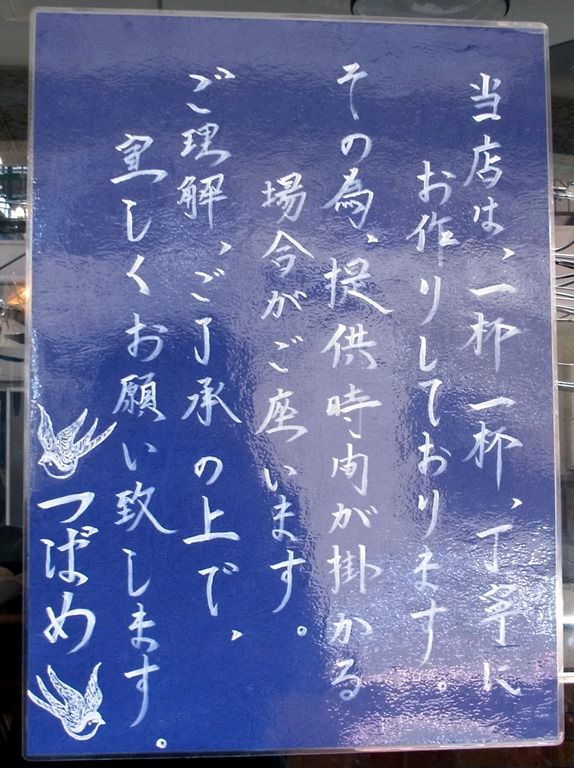 当店は、一杯一杯、丁寧に
お作りしております。
その為、提供時間が掛かる
場合がご座います。
ご理解、ご了承の上で、
宜しくお願い致します。
つばめ